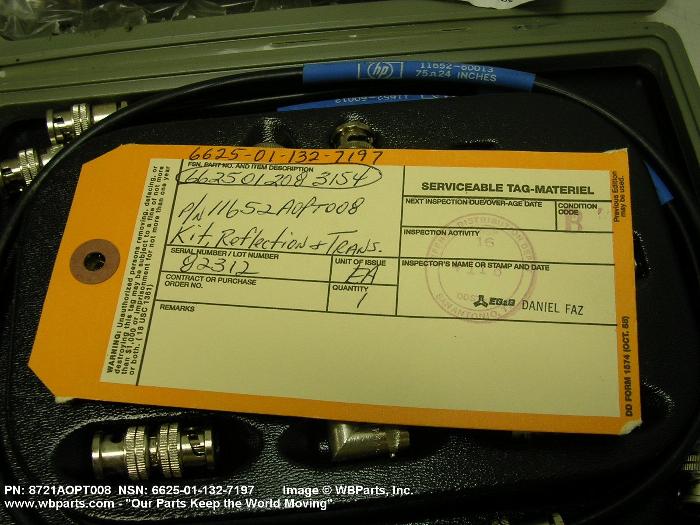 hp 11652-60013
75Ω 24 INCHES
11652-60013
6625-01-132-7197
FSN, PART NO. AND ITEM DESCRIPTION
6625 01 208 3154
P/N 11652A OPT 008
Kit, Reflection & Trans.
SERIAL NUMBER / LOT NUMBER
UNIT OF ISSUE
EA
CONTRACT OR PURCHASE ORDER NO.
QUANTITY
1
REMARKS
SERVICEABLE TAG-MATERIEL
NEXT INSPECTION DUE/OVER-AGE DATE
CONDITION CODE
B
INSPECTION ACTIVITY
16
INSPECTOR'S NAME OR STAMP AND DATE
SAN ANTONIO, TX
EG&G DANIEL FAZ
Previous Edition may be used.
DD FORM 1574 (OCT. 88)
WARNING: Unauthorized persons removing, defacing, or
destroying this tag may be subject to a fine of not more
than $1,000 or imprisonment for not more than one year
or both. ( 18 USC 1361)
PN: 8721AOPT008 NSN: 6625-01-132-7197 Image © WBParts, Inc.
www.wbparts.com - "Our Parts Keep the World Moving"